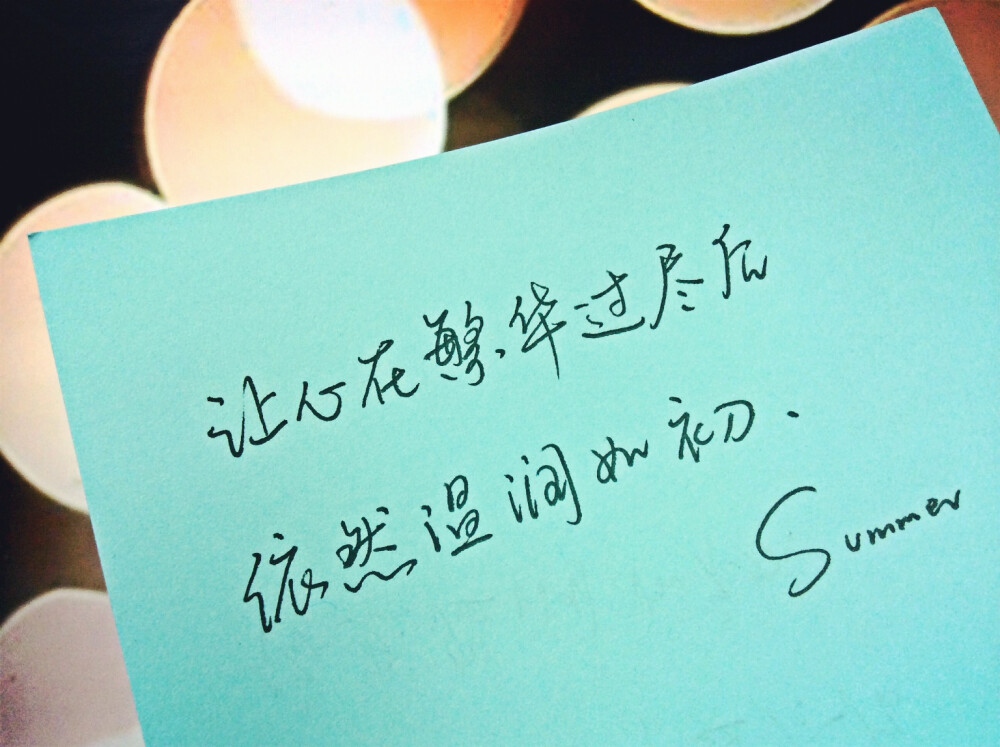 让心在繁华过尽后
依然温润如初.
Summer